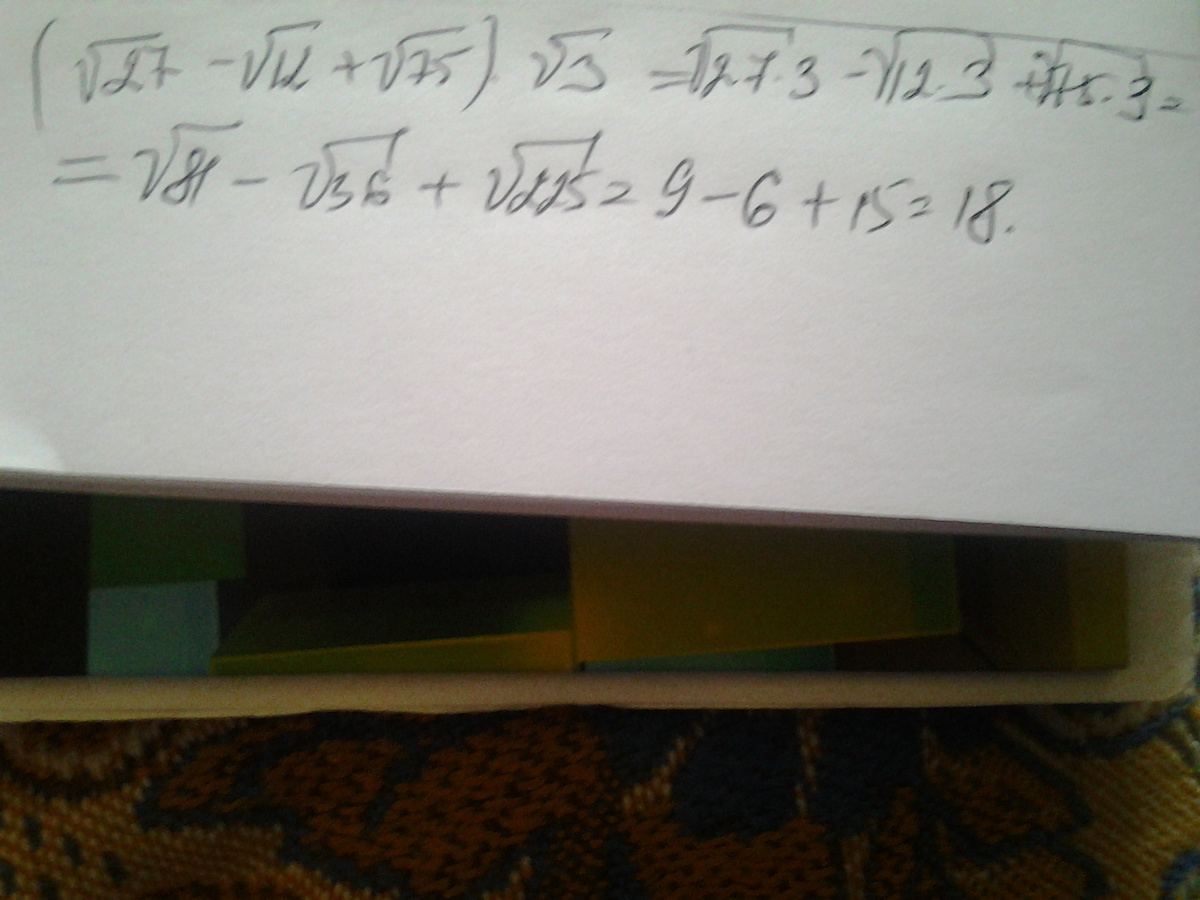 (√27 - √12 + √75) · √3 = √27·3 - √12·3 + √75·3 =
= √81 - √36 + √225 = 9 - 6 + 15 = 18.